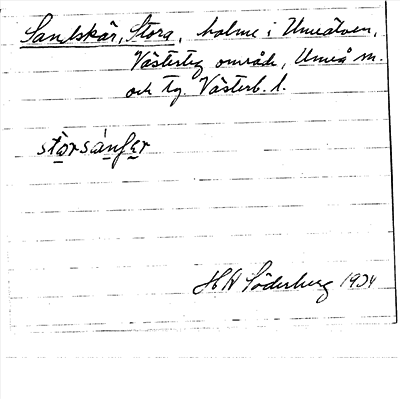 Sandskär, Stora, holme i Umeälven,
Västerteg område, Umeå sn.
och tg. Västerb. l.
HN Söderberg 1934